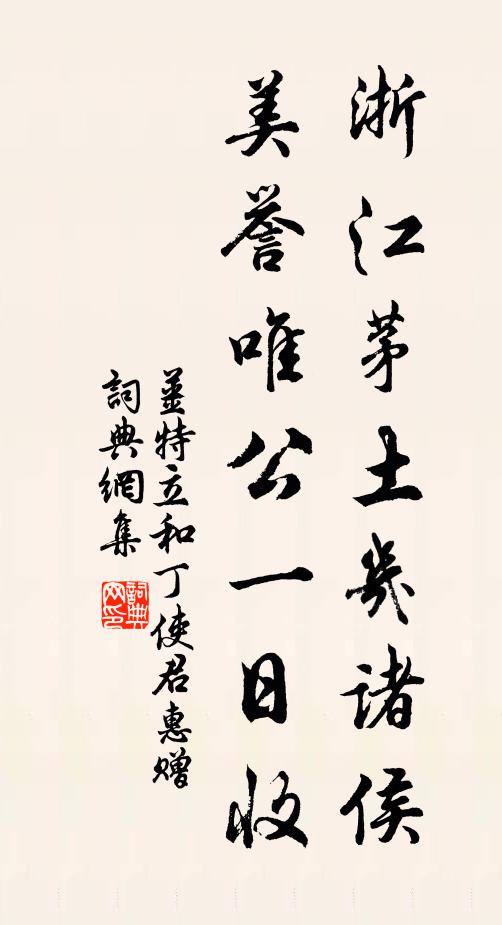 浙江茅土幾諸侯
美譽唯公一日收
姜特立和丁使君惠贈
詞典網集
詞典网印